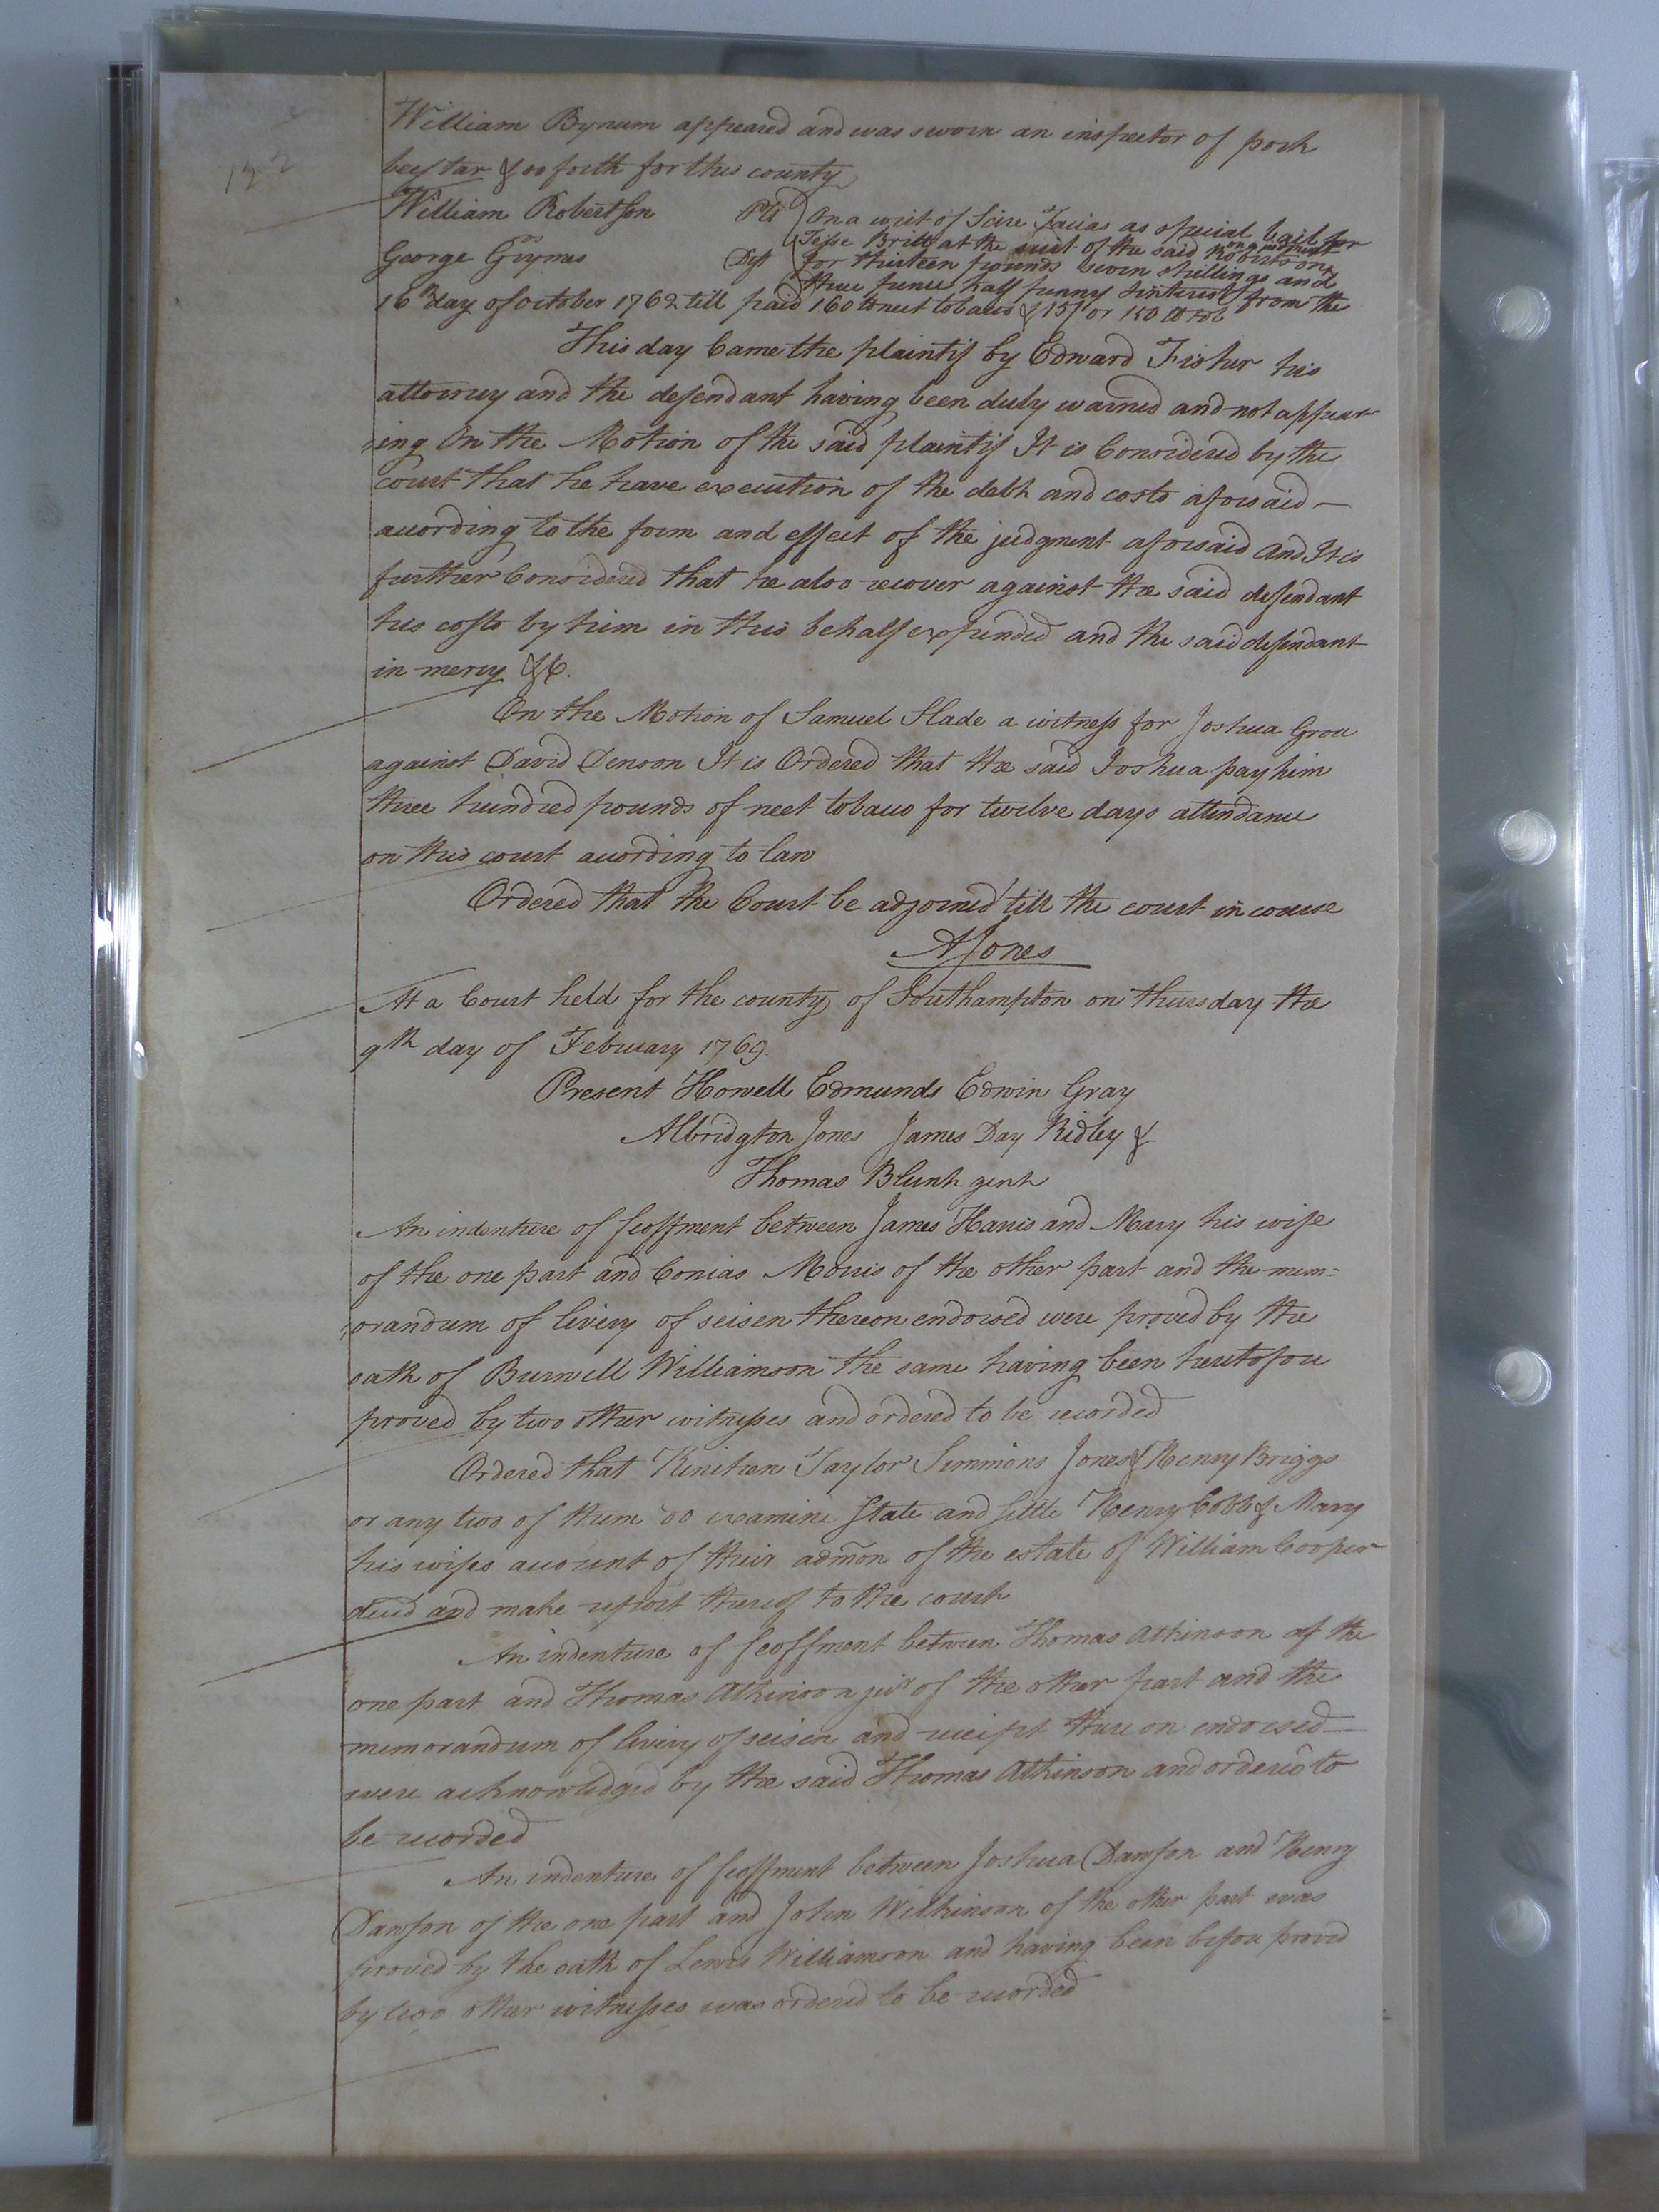 122
William Bynum appeared and was sworn an inspector of pork
beef tar & so forth for this county
William Robertson Plt On a writ of Scire Facias as special bail for
Jesse Britt at the suit of the said Robertson on a judgment
George Gurynes Deft for thirteen pounds seven shillings and
three pence half penny & interest from the
16th day of october 1762 till paid 160 lb neet tobacco & 15/ or 150 lb tob
This day Came the plaintif by Edward Fisher his
attorney and the defendant having been duly warned and not appear
ing On the Motion of the said plaintif It is Considered by the
Court that he have execution of the debt and costs aforesaid —
according to the form and effect of the judgment aforesaid And It is
further Considered that he also recover against the said defendant
his costs by him in this behalf expended and the said defendant
in mercy &c.
On the Motion of Samuel Slade a witness for Joshua
against David Denson It is Ordered that the said Joshua pay him
three hundred pounds of neet tobacco for twelve days attendance
on this court according to law
Ordered that the Court be adjorned till the court in course
AJones
At a Court held for the county of Southampton on thursday the
9th day of February 1769.
Present Howell Edmunds Edwin Gray
Albridgton Jones James Day Ridley &
Thomas Blunt gent
An indenture of feoffment between James Harris and Mary his wife
of the one part and Conias Morris of the other part and the mem=
orandum of livery of seisen thereon endorsed were proved by the
oath of Burwell Williamson the same having been heretofore
proved by two other witnesses and ordered to be recorded
Ordered that Kinchen Taylor Simmons Jones & Henry Briggs
or any two of them do examine State and settle Henry Cobb & Mary
his wifes account of their admon of the estate of William Cooper
decd and make report thereof to the court
An indenture of feoffment between Thomas Atkinson of the
one part and Thomas Atkinson junr of the other part and the
memorandum of livery of seisin and receipt thereon endorsed —
were acknowledged by the said Thomas Atkinson and ordered to
be recorded
An indenture of feoffment between Joshua Dawson and Henry
Dawson of the one part and John Wilkinson of the other part was
proved by the oath of Lewis Williamson and having been before proved
by two other witnesses was ordered to be recorded